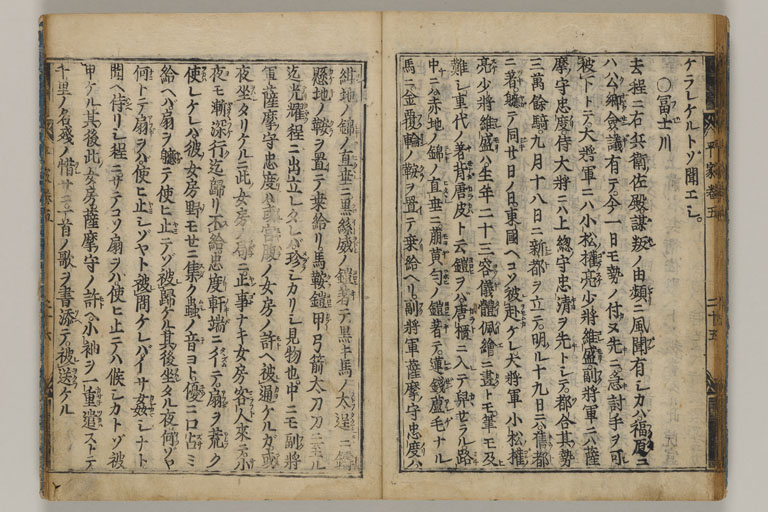 ケラレケルトソ聞エシ。
〇冨士川
去程ニ右兵衛佐殿謀叛ノ由頻ニ風聞有シカハ福原ニ
ハ公卿僉議有テ今一日モ勢ノ付又先ニ急討手ヲ可
被下トテ大将軍ニハ小松権亮少将維盛副将軍ニハ薩
摩守忠度侍大将ニハ上総守忠清ヲ先トシテ都合其勢
三萬餘騎九月十八日ニ新都ヲ立テ明ル十九日ニハ舊都
ニ著軈テ同廿日ノ日東國ヘコソ被赴ケレ大将軍小松権
亮少将維盛ハ生年二十三容儀體佩繪ニ畫トモ筆モ及
難シ重代ノ著背唐皮ト云鎧ヲハ唐櫃ニ入テ舁セラル路
中ニハ赤地ノ錦ノ直垂ニ萠黄匂ノ鎧著テ連錢蘆毛ナル
馬ニ金覆輪ノ鞍ヲ置テ乗給ヘリ。副将軍薩摩守忠度ハ
紺地ノ錦ノ直垂ニ黒絲威ノ鎧著テ黒キ馬ノ太逞ニ鑄
懸地ノ鞍ヲ置テ乗給リ馬鞍鎧甲弓箭太刀刀ニ至ル
迄光耀程ニ出立レタレハ珎シカリシ見物也。中ニモ副将
軍薩摩守忠度ハ或宮腹ノ女房ノ許ヘ被通ケルカ或
夜坐タリケルニ此女房ノ局ニ止事ナキ女房客人来テ小
夜モ漸深行迄歸リ不給忠度軒端ニイテ扇ヲ荒ク
使レケレハ彼女房野モセニ集ク蟲ノ音ヨト優ニ口占ミ
給ヘハ扇ヲ軈テ使ヒ止テソ被歸ケル其後坐タル夜何ソヤ
何トテ扇ヲハ使ヒ止シソヤト被問ケレハイサ姦シナト
聞ヘ侍リシ程ニサテコソ扇ヲハ使ヒ止テハ候シカトソ被
申ケル其後此女房薩摩守ノ許ヘ小袖ヲ一重遣ストテ
千里ノ名殘ノ惜サニ一首ノ歌ヲ書添テ被送ケル
平家巻五
二十五